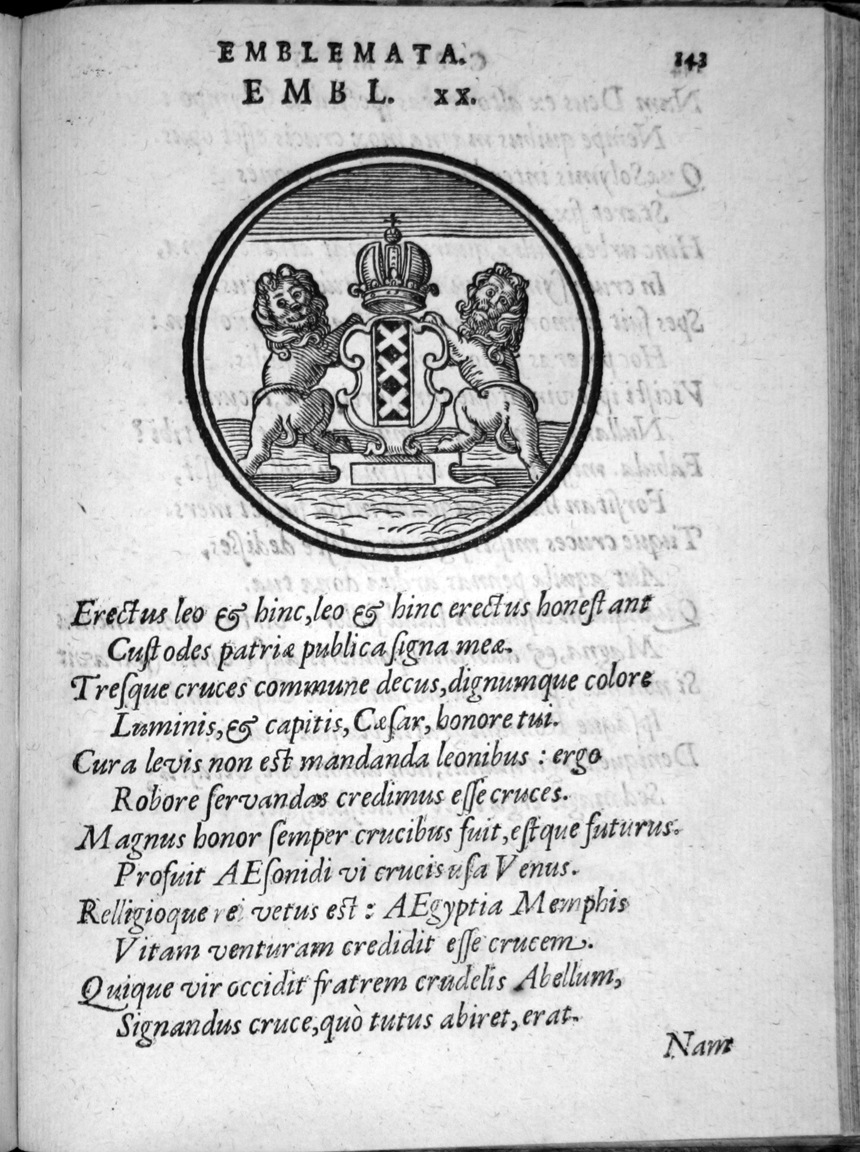 EMBLEMATA.
143
EMBL. XX.
Erectus leo & hinc, leo & hinc erectus honeſtant
Cuſtodes patriæ publica ſigna meæ.
Treſque cruces commune decus, dignumque colore
Luminis, & capitis, Cæſar, honore tui.
Cura levis non eſt mandanda leonibus : ergo
Robore ſervandas credimus eſſe cruces.
Magnus honor ſemper crucibus fuit, eſtque futurus.
Profuit AEſonidi vi crucis uſa Venus.
Relligioque rei vetus eſt : AEgyptia Memphis
Vitam venturam credidit eſſe crucem.
Quique vir occidit fratrem crudelis Abellum,
Signandus cruce, quò tutus abiret, erat.
Nam